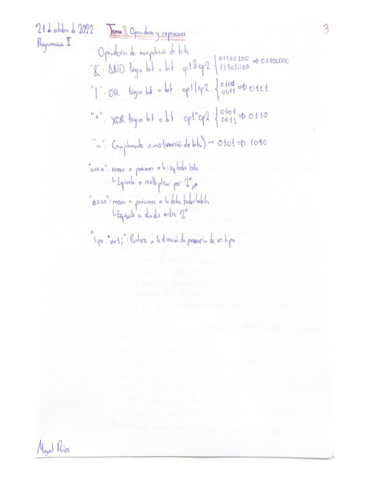 21 de octubre de 2022 Tema 3. Operadores y expresiones 3
Programación I
Operadores de manipulación de bits
"&": AND lógico bit a bit op1 & op2 { 01100100 11101010 => 01100000
"|": OR lógico bit a bit op1 | op2 { 0101 0011 => 0111
"^": XOR lógico bit a bit op1^op2 { 0101 0011 => 0110
"~": Complemento a uno (inversión de bits) -> 0101 => 1010
mover n posiciones a la izq todos bits
Equivale a multiplicar por 2ⁿ
mover n posiciones a la dcha todos los bits
Equivale a dividir entre 2ⁿ
"tipo *var1;": Puntero a la dirección de memoria de un tipo
Miguel